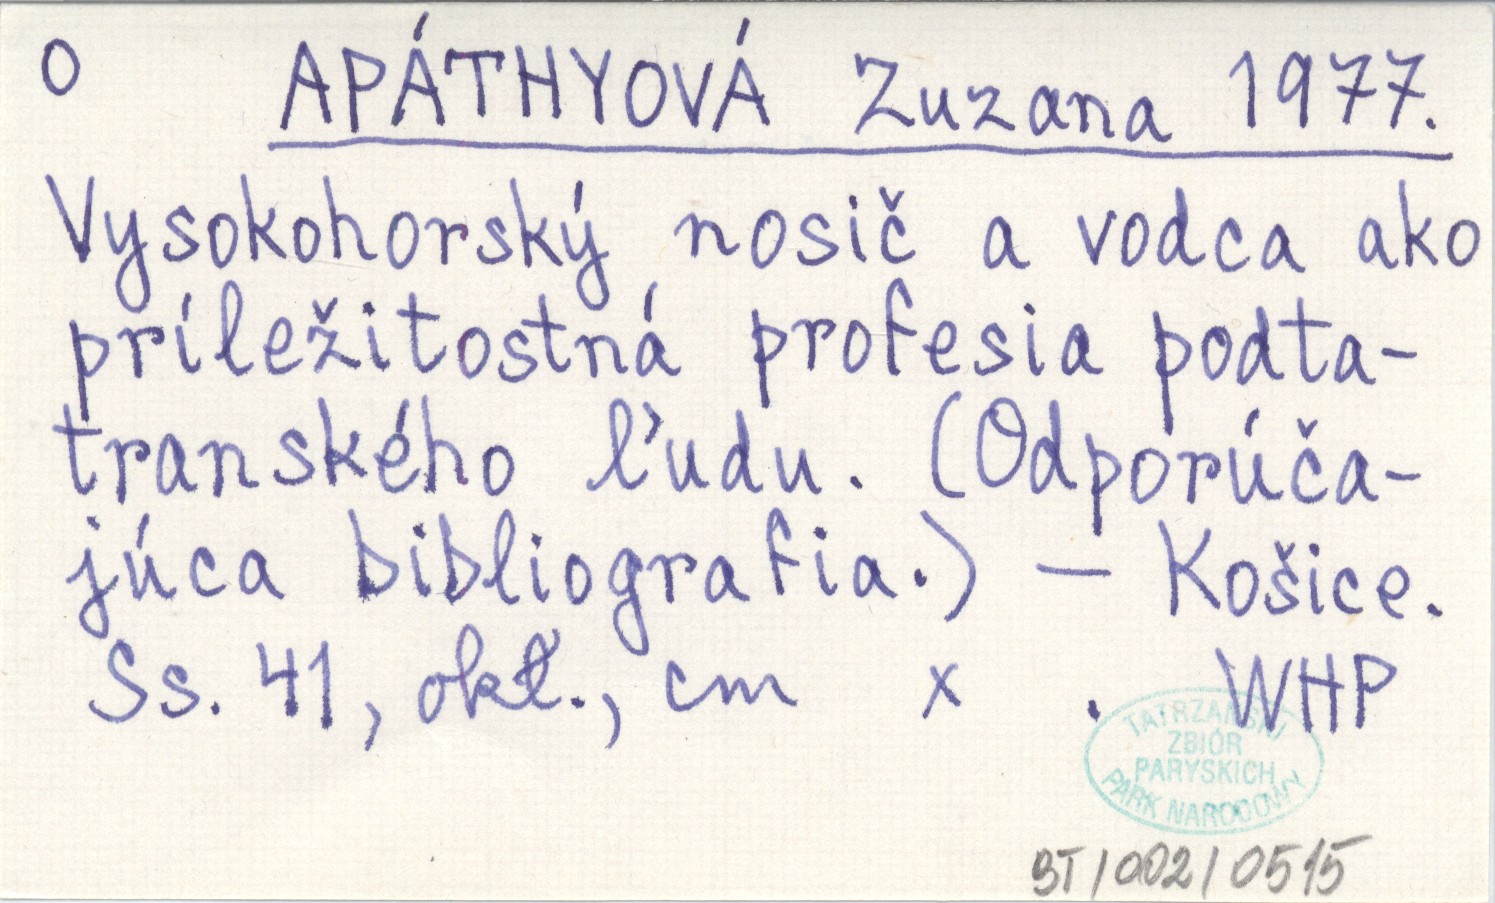 O APÁTHYOVÁ Zuzana 1977.
Vysokohorský nosič a vodca ako
príležitostná profesia podta-
tranského ľudu. (Odporúča-
júca bibliografia.) — Košice.
Ss. 41, okł., cm x . WHP
TATRZAŃSKI
ZBIÓR
PARYSKICH
PARK NARODOWY
BT/002/0515